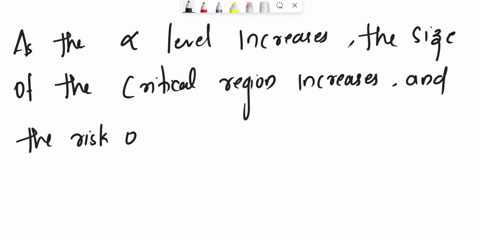 As the α level increases, the size
of the critical region increases. and
the risk o